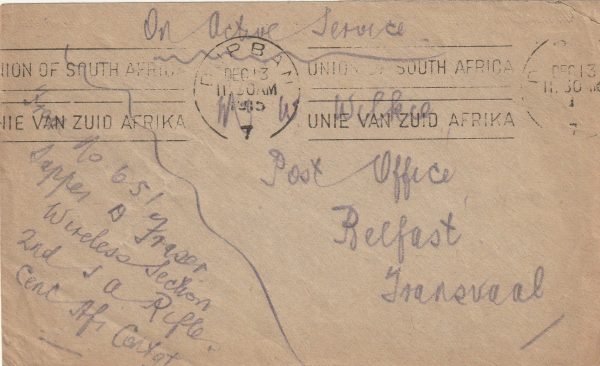 On Active Service
DURBAN
DEC 13
11.30 AM
1915
7
UNION OF SOUTH AFRICA
UNIE VAN ZUID AFRIKA
UNION OF SOUTH AFRICA
UNIE VAN ZUID AFRIKA
DEC 13
11.30 AM
W Wilkie
Post Office
Belfast
Transvaal
From
No 651
Sapper D Fraser
Wireless Section
2nd S A Rifle
Cent Afr Contgt